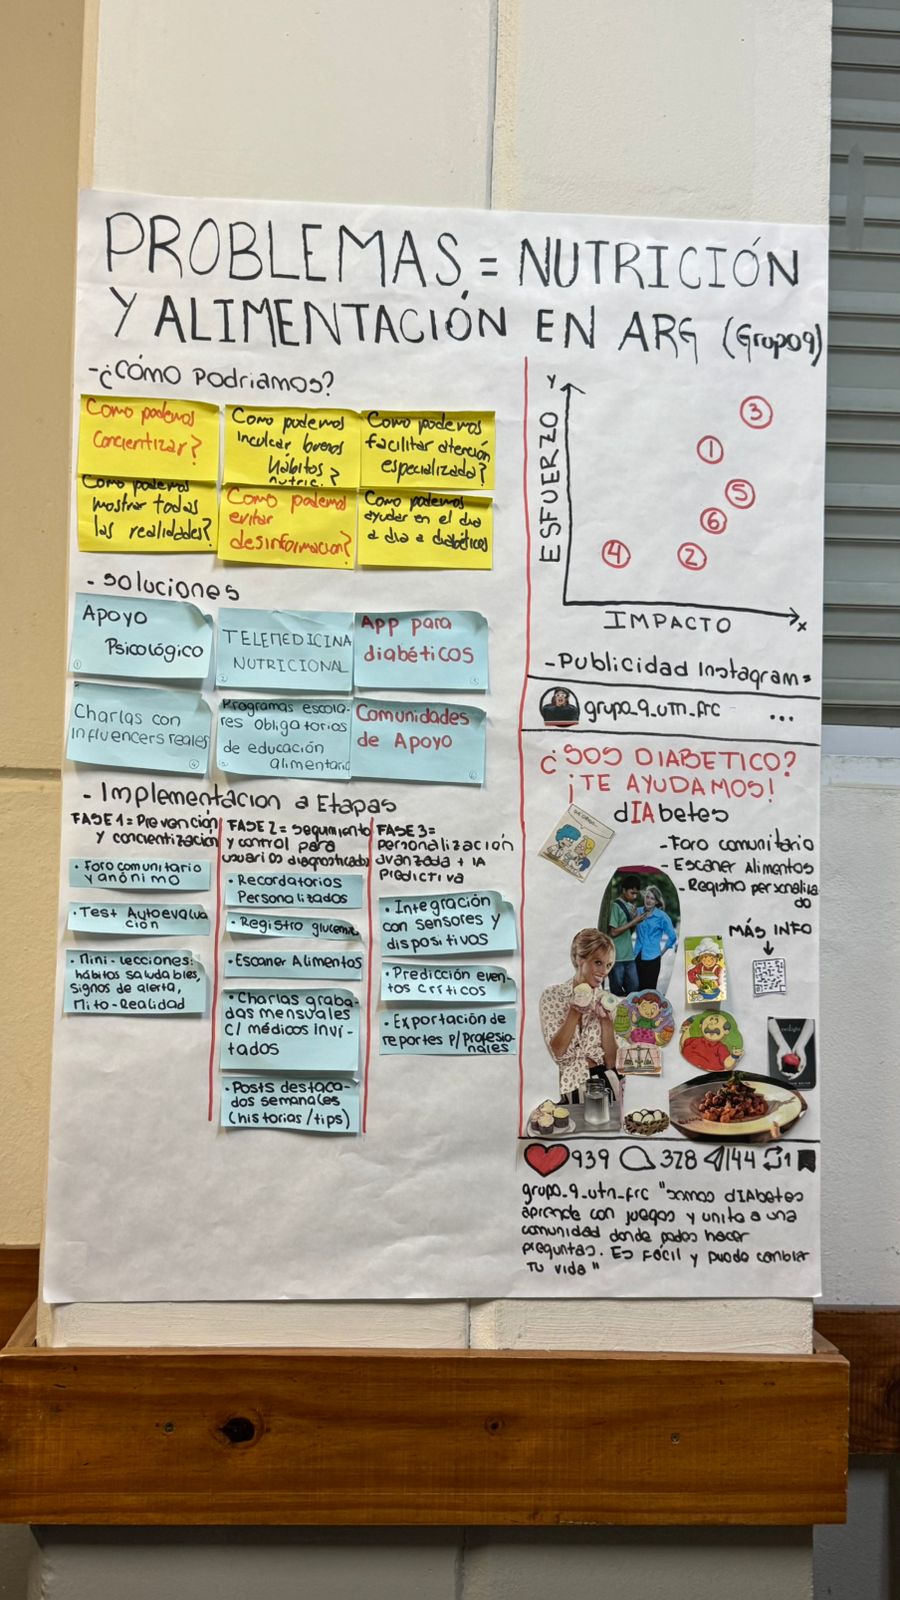 PROBLEMAS = NUTRICIÓN
Y ALIMENTACIÓN EN ARG (Grupo 9)
- ¿CÓMO Podriamos?
Como podemos
concientizar?
Como podemos
inculcar buenos
hábitos
nutric.?
Como podemos
facilitar atención
especializada?
Como podemos
mostrar todas
las realidades?
Como podemos
evitar
desinformacion?
Como podemos
ayudar en el dia
a dia a diabéticos
- Soluciones
Apoyo
Psicológico
1
TELEMEDICINA
NUTRICIONAL
2
App para
diabéticos
3
Charlas con
influencers reales
4
Programas escola-
res obligatorios
de educación
alimentaria
Comunidades
de Apoyo
6
- Implementacion a Etapas
FASE 1 = Prevención
y concientización
• Foro comunitario
y anónimo
• Test Autoevalua
ción
• Mini-lecciones:
hábitos saludables,
signos de alerta,
Mito-Realidad
FASE 2 = seguimiento
y control para
usuarios diagnosticados
• Recordatorios
Personalizados
• Registro glucemia
• Escaner Alimentos
• Charlas graba-
das mensuales
c/ médicos invi-
tados
• Posts destaca-
dos semanales
(historias/tips)
FASE 3 =
personalización
avanzada + IA
Predictiva
• Integración
con sensores y
dispositivos
• Predicción even-
tos críticos
• Exportación de
reportes p/ profesio-
nales
Y
ESFUERZO
3
1
5
6
4
2
IMPACTO
X
- Publicidad Instagram =
grupo_9_utn_frc ...
¿SOS DIABETICO?
¡TE AYUDAMOS!
dIAbetes
- Foro comunitario
- Escaner Alimentos
- Registro personaliza
do
MÁS INFO
939 328 144 1
grupo_9_utn_frc "Somos dIAbetes
aprende con juegos y unite a una
comunidad donde podes hacer
preguntas. Es Fácil y puede cambiar
Tu vida"